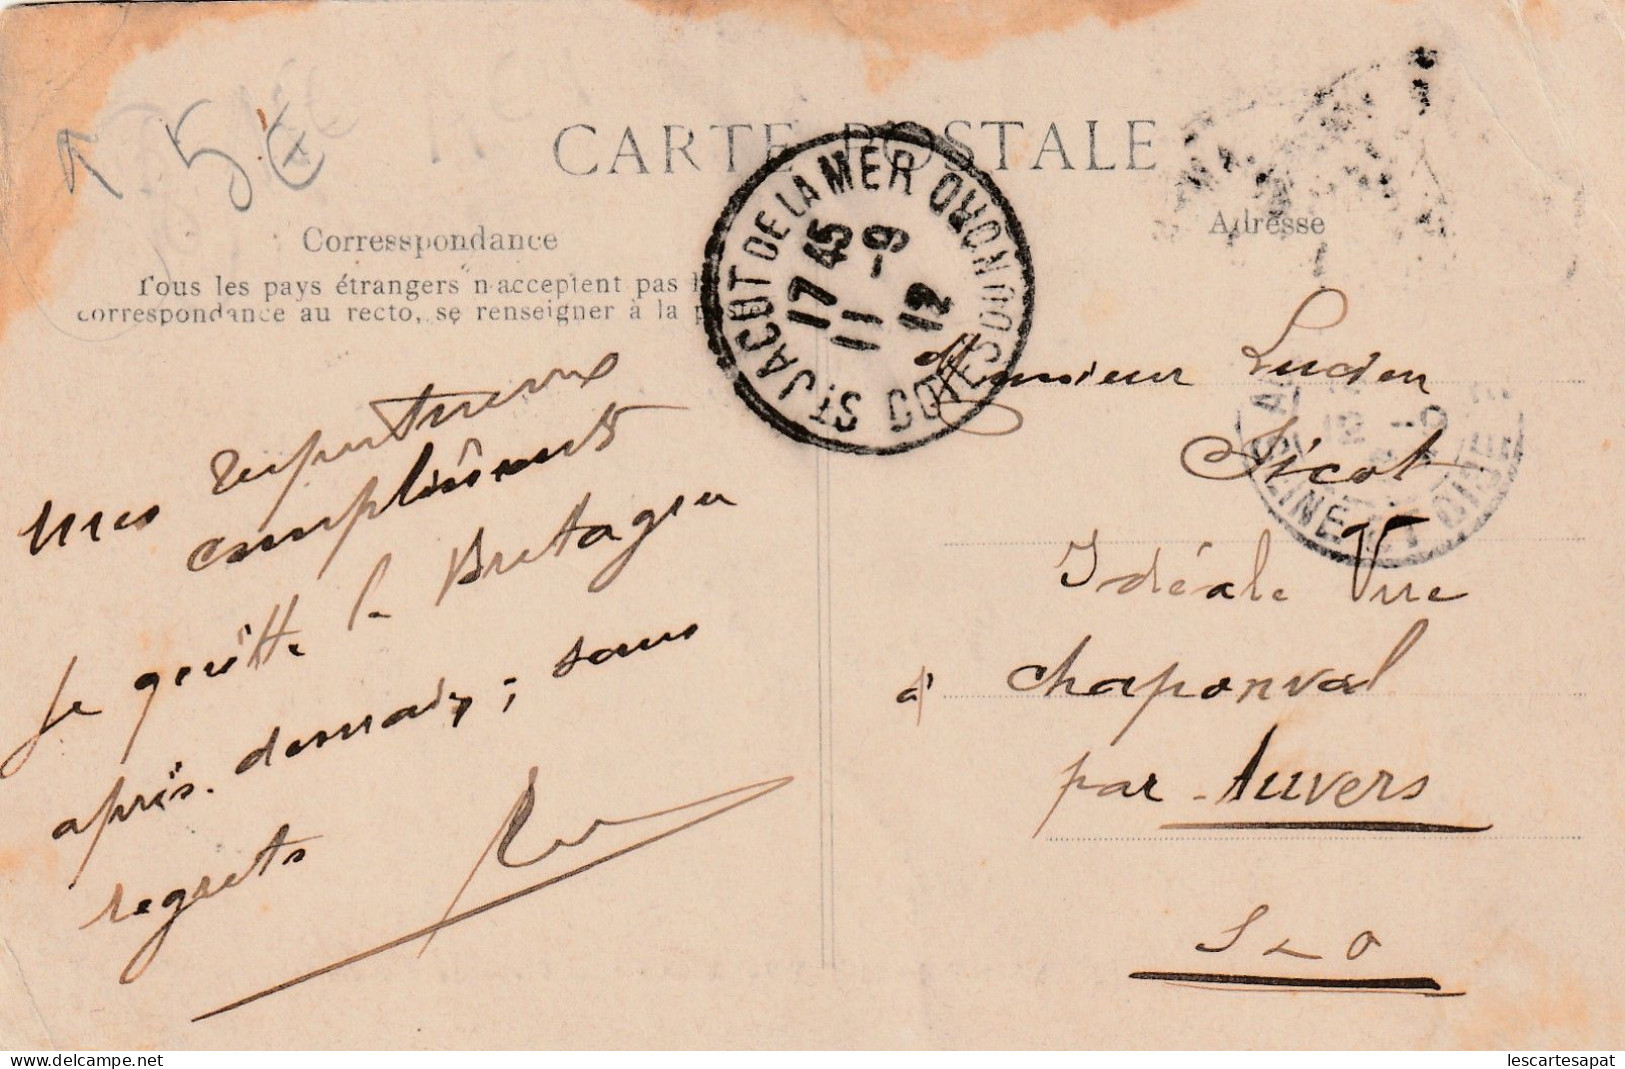 5€
CARTE POSTALE
Corresspondance
Tous les pays étrangers n'acceptent pas
correspondance au recto, se renseigner à la poste
Adresse
ST. JACOT DE LA MER COTES DU NORD
17 45
11 -9
12
SEINE ET OISE
mes respectueux
compliments
Je quitte la Bretagne
après-demain; sans
regrets
Monsieur Lucien
Sicot
Idéale Vue
à Chaponval
par Auvers
S & O
delcampe.net
lescartesapat